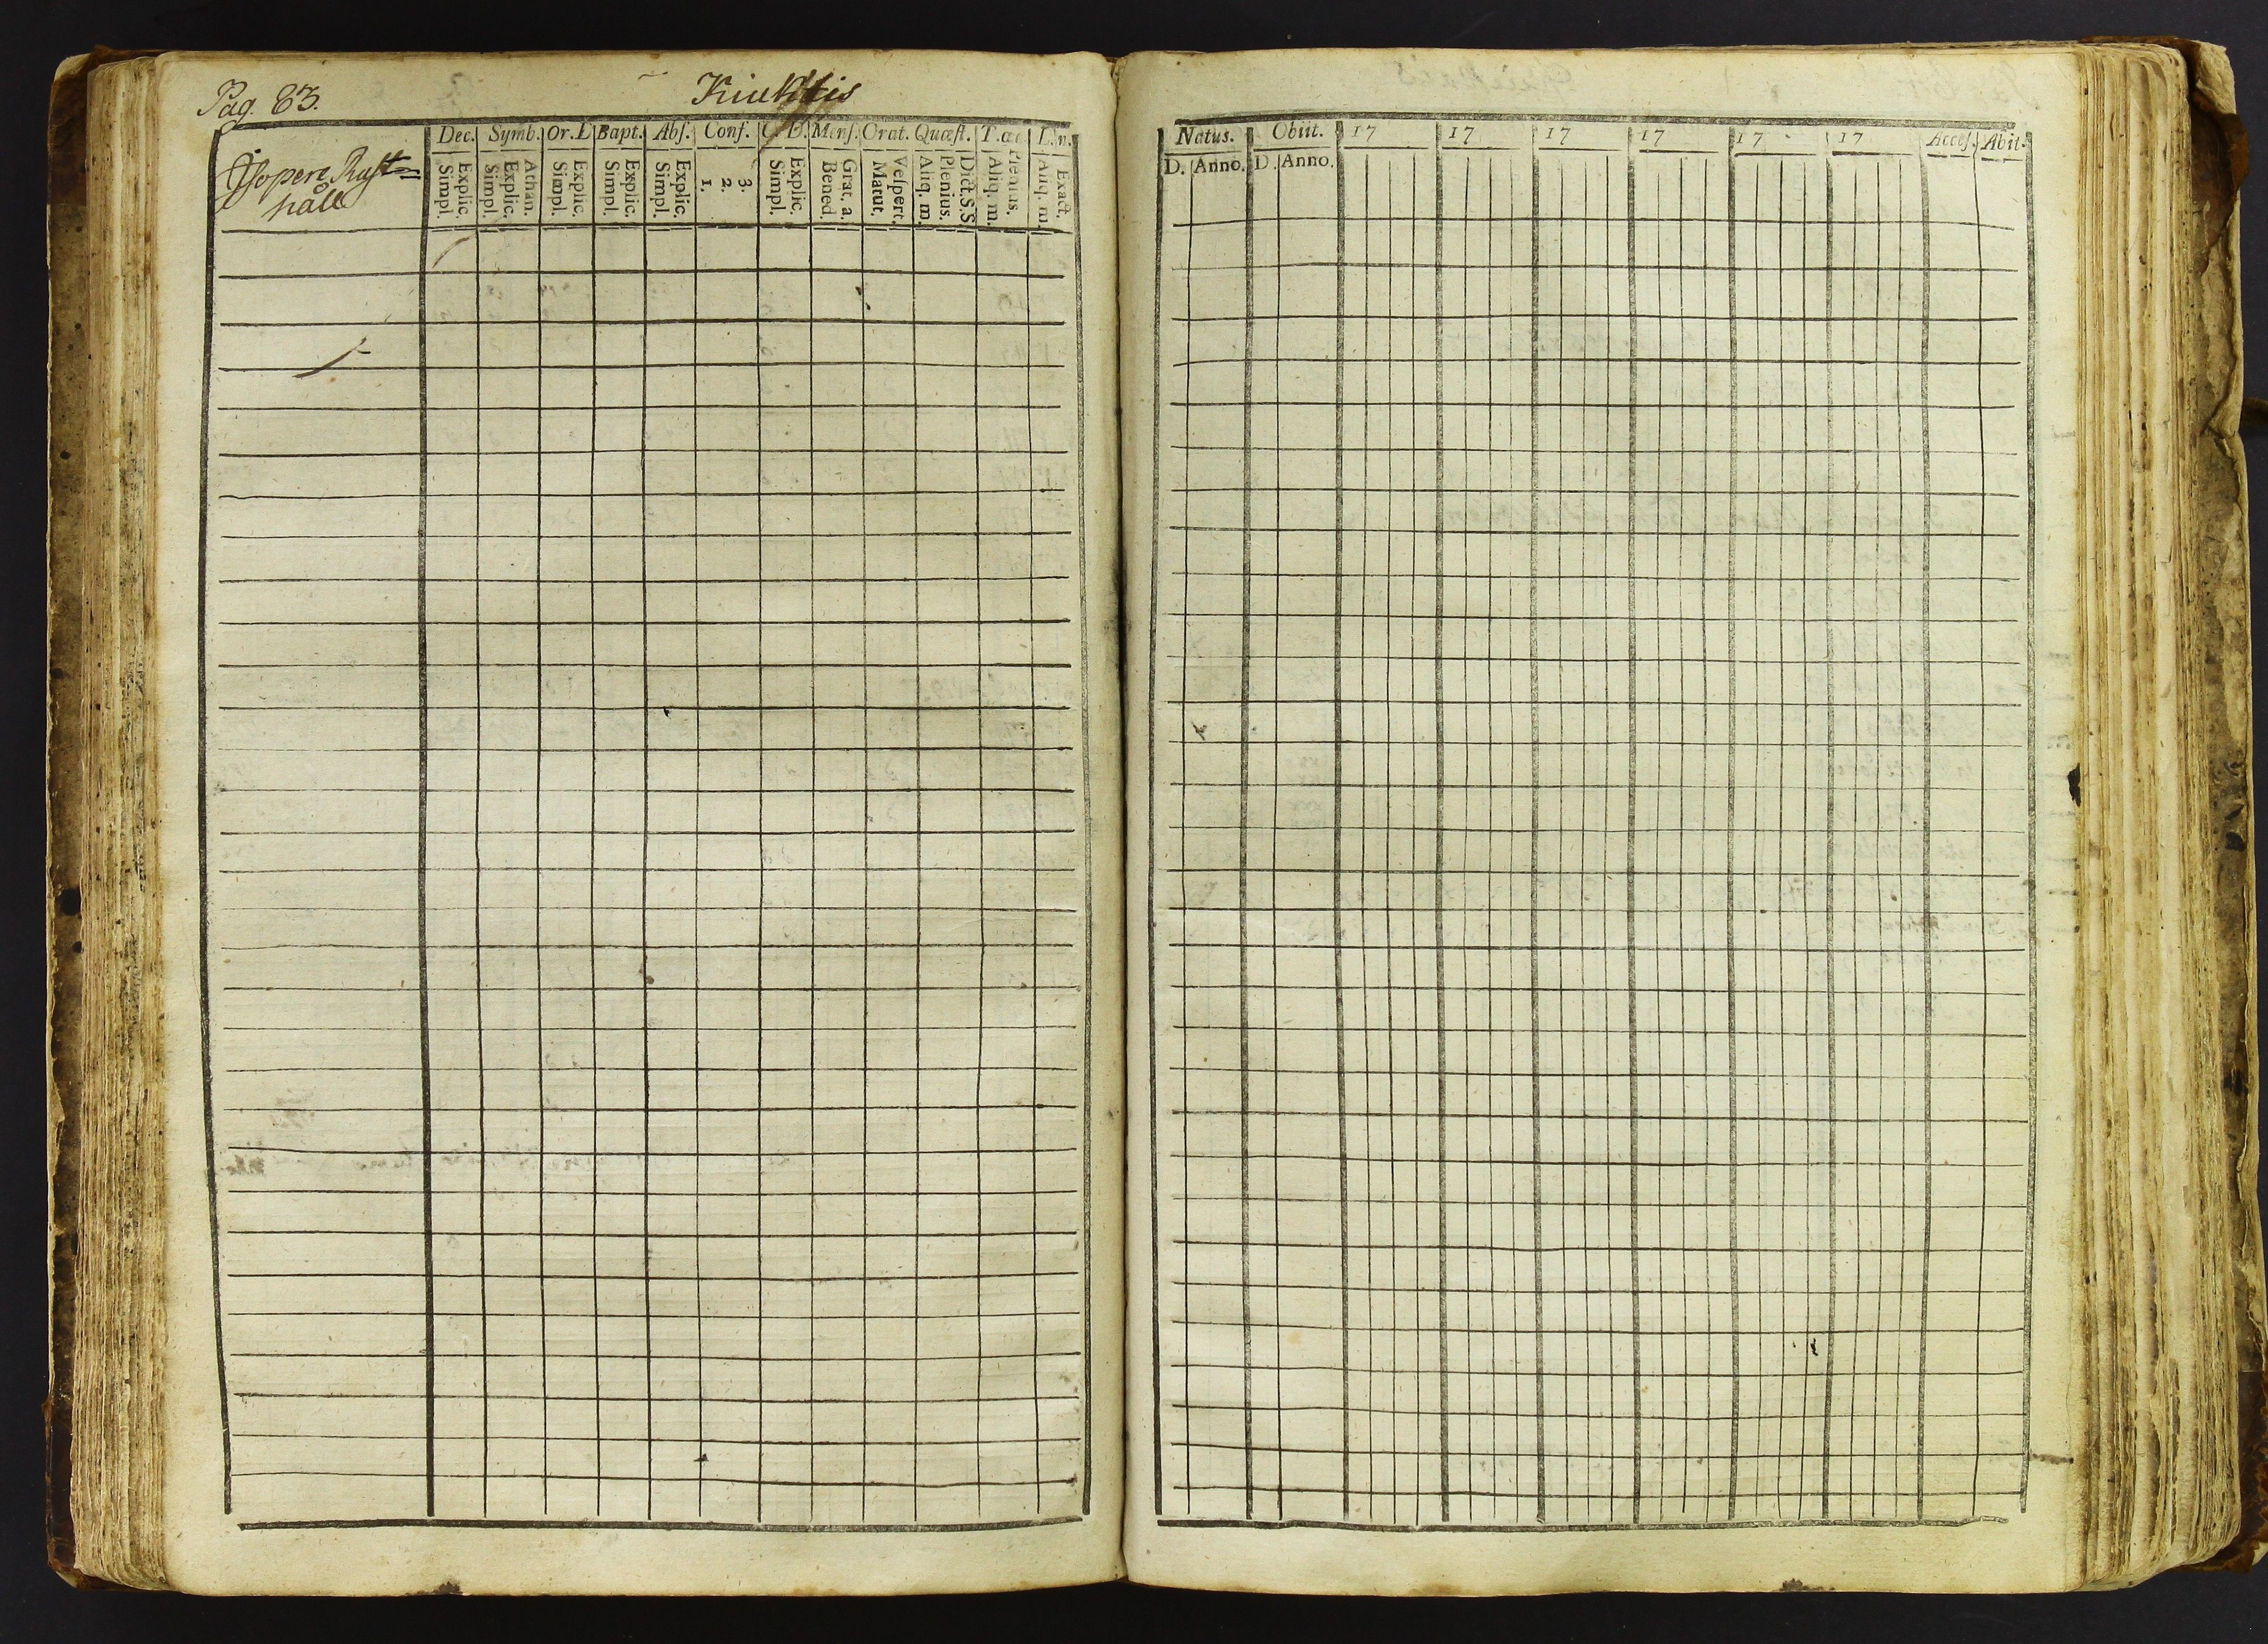 Pag. 83.
Dec. Symb. Or. D Bapt. Abs. Conf. C. D. Mens. Orat. Quæst. T. æc. L. n.
Isopere Rust=
håll
Simpl. Explic. Simpl. Explic. Athan. Simpl. Explic. Simpl. Explic. Simpl. Explic. 1. 2. 3. Simpl. Explic. Bened. Grat. a. Matut. Vespert. Aliq. m. Plenius. Dict. S. S. Aliq. m. Plenius. Aliq. m. Exact.
Natus. Obiit. 17 17 17 17 17 17 Acces. Abit.
D. Anno. D. Anno.